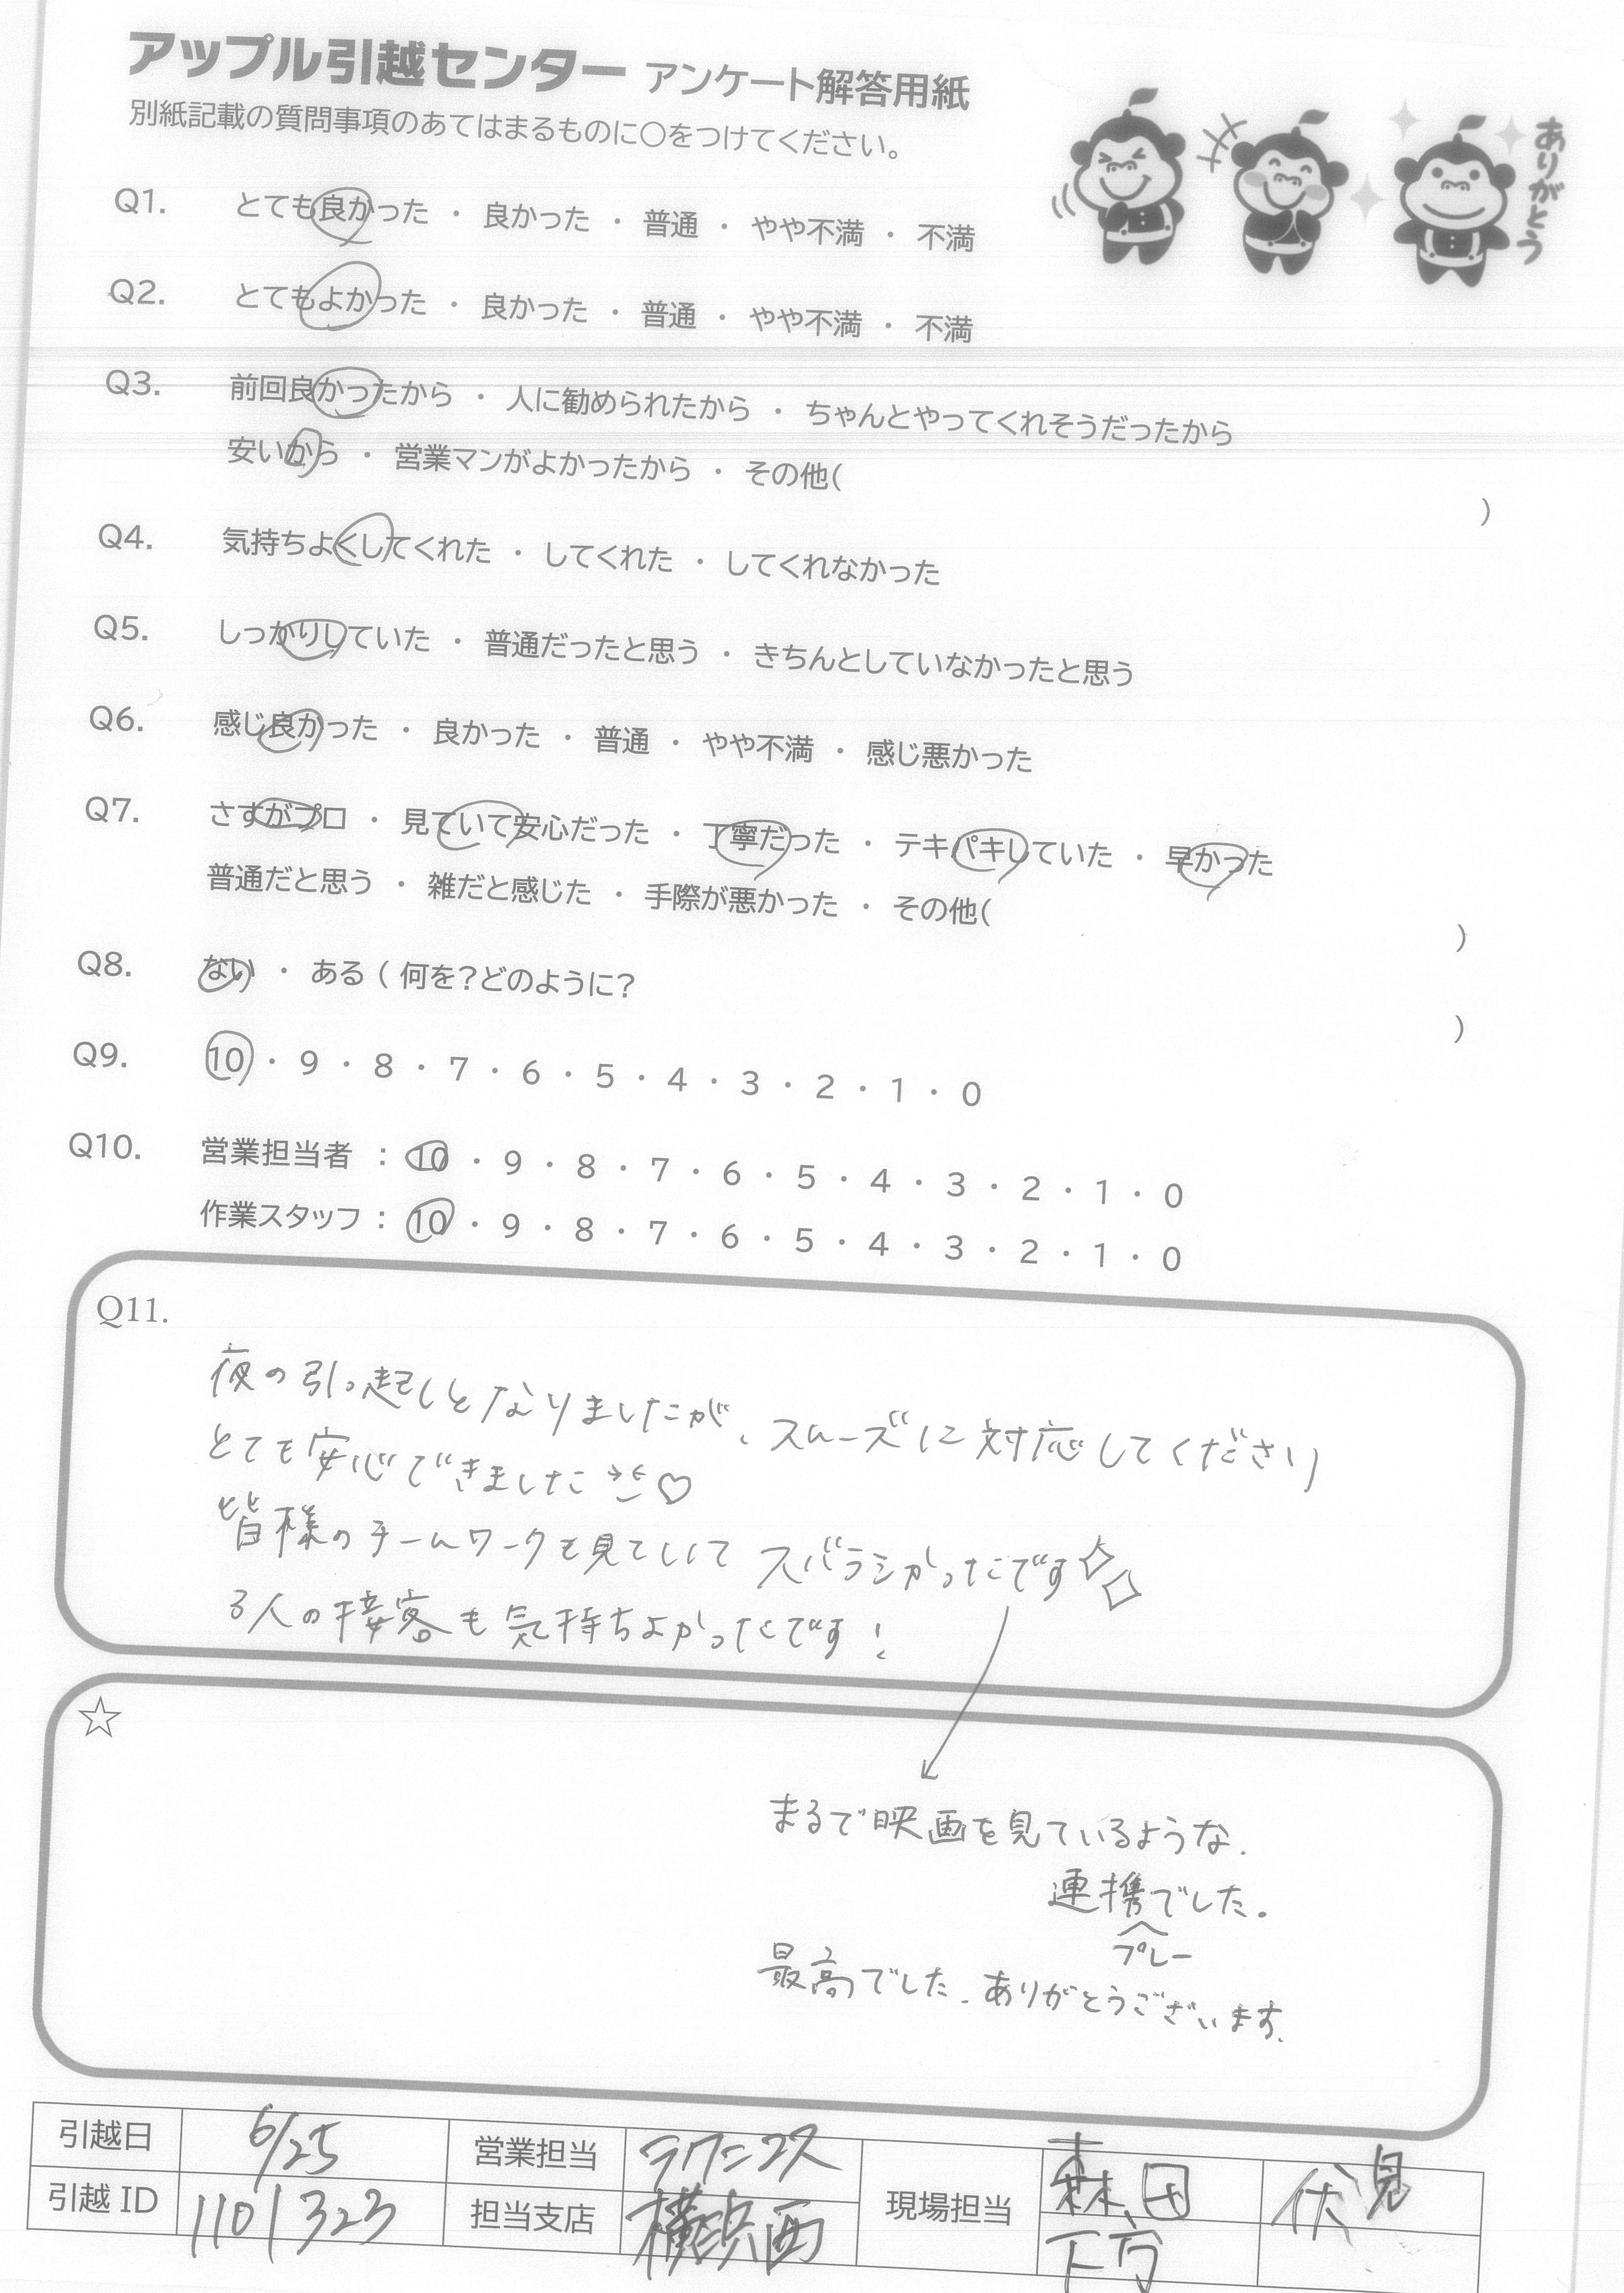 アップル引越センター アンケート解答用紙
別紙記載の質問事項のあてはまるものに〇をつけてください。
ありがとう
Q1. とても良かった ・ 良かった ・ 普通 ・ やや不満 ・ 不満
Q2. とてもよかった ・ 良かった ・ 普通 ・ やや不満 ・ 不満
Q3. 前回良かったから ・ 人に勧められたから ・ ちゃんとやってくれそうだったから
安いから ・ 営業マンがよかったから ・ その他( )
Q4. 気持ちよくしてくれた ・ してくれた ・ してくれなかった
Q5. しっかりしていた ・ 普通だったと思う ・ きちんとしていなかったと思う
Q6. 感じ良かった ・ 良かった ・ 普通 ・ やや不満 ・ 感じ悪かった
Q7. さすがプロ ・ 見ていて安心だった ・ 丁寧だった ・ テキパキしていた ・ 早かった
普通だと思う ・ 雑だと感じた ・ 手際が悪かった ・ その他( )
Q8. ない ・ ある ( 何を?どのように? )
Q9. 10 ・ 9 ・ 8 ・ 7 ・ 6 ・ 5 ・ 4 ・ 3 ・ 2 ・ 1 ・ 0
Q10. 営業担当者 : 10 ・ 9 ・ 8 ・ 7 ・ 6 ・ 5 ・ 4 ・ 3 ・ 2 ・ 1 ・ 0
作業スタッフ : 10 ・ 9 ・ 8 ・ 7 ・ 6 ・ 5 ・ 4 ・ 3 ・ 2 ・ 1 ・ 0
Q11.
夜の引っ起しとなりましたが、スムーズに対応してくださり
とても安心できました♡
皆様のチームワークも見ていて スバラシかったです
3人の接客も気持ちよかったです!
☆
まるで映画を見ているような、
連携でした。
プレー
最高でした。ありがとうございます。
引越日 6/25 営業担当 現場担当 森田 伏見
引越 ID 1101323 担当支店 横浜西 下方